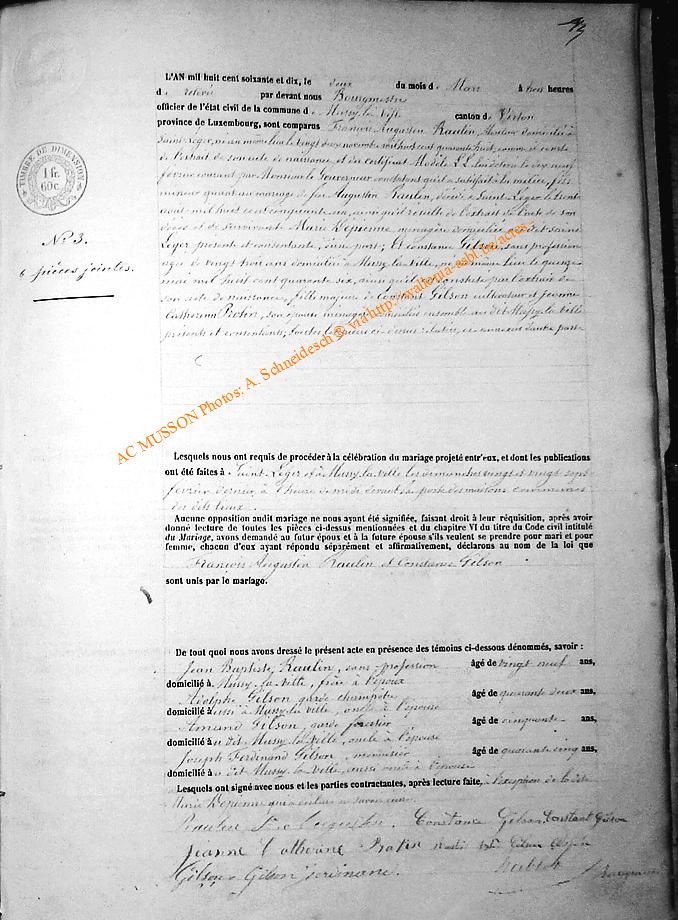 L'AN mil huit cent soixante et dix, le deux du mois de Mars à trois heures
de relevée par devant nous Bourgmestre
officier de l'état civil de la commune de Mussy-la-Ville canton de Virton
province de Luxembourg, sont comparus François Augustin Raulin, domicilié à
Saint Léger, né au même lieu le vingt deux novembre mil huit cent quarante huit, comme il conste
de l'extrait de son acte de naissance, et du certificat Modèle LL lui délivré le dix neuf
février courant par Monsieur le Gouverneur constatant qu'il a satisfait à la milice, fils
mineur quant au mariage de feu Augustin Raulin, décédé à Saint Léger le trente
août mil huit cent cinquante un, ainsi qu'il résulte de l'extrait de l'acte de son
décès et de survivante Marie Depienne ménagère domiciliée au dit Saint
Léger présente et consentante, d'une part; Et Constance Gilson, sans profession
âgée de vingt trois ans domiciliée à Mussy-la-Ville, née au même lieu le quinze
mai mil huit cent quarante six, ainsi qu'il conste par l'extrait de
son acte de naissance, fille majeure de Constant Gilson cultivateur et Jeanne
Catherine Rotin, son épouse ménagère domiciliés ensemble au dit Mussy-la-Ville
présents et consentants; toutes les pièces ci-dessus relatées, ci annexées d'autre part
TIMBRE DE DIMENSION
1 fr.
60c.
N° 3.
6 pièces jointes.
AC MUSSON Photos: A. Schneidesch ® via http://wallonia-asbl.be/actes -
Lesquels nous ont requis de procéder à la célébration du mariage projeté entr'eux, et dont les publications
ont été faites à Saint Léger et à Mussy-la-Ville les dimanches vingt et vingt sept
février dernier à l'heure de midi devant la porte des maisons communes
des dits lieux.
Aucune opposition audit mariage ne nous ayant été signifiée, faisant droit à leur réquisition, après avoir
donné lecture de toutes les pièces ci-dessus mentionnées et du chapitre VI du titre du Code civil intitulé
du Mariage, avons demandé au futur époux et à la future épouse s'ils veulent se prendre pour mari et pour
femme, chacun d'eux ayant répondu séparément et affirmativement, déclarons au nom de la loi que
François Augustin Raulin et Constance Gilson
sont unis par le mariage.
De tout quoi nous avons dressé le présent acte en présence des témoins ci-dessous dénommés, savoir :
Jean Baptiste Raulin, sans profession âgé de vingt neuf ans,
domicilié à Mussy-la-Ville, frère à l'époux
Adolphe Gilson garde champêtre âgé de quarante deux ans,
domicilié aussi à Mussy la Ville, oncle à l'épouse
Amand Gilson, garde forestier âgé de cinquante ans,
domicilié au dit Mussy-la-Ville, oncle à l'épouse
Joseph Ferdinand Gilson, menuisier âgé de quarante cinq ans,
domicilié à u dit Mussy-la-Ville, aussi oncle à l'épouse
Lesquels ont signé avec nous et les parties contractantes, après lecture faite, à l'exception de la dite
Marie Depienne qui a déclaré ne savoir écrire.
Raulin Constance Gilson Constant Gilson
Jeanne Catherine Rotin Gilson
Gilson Gilson ferdinane.